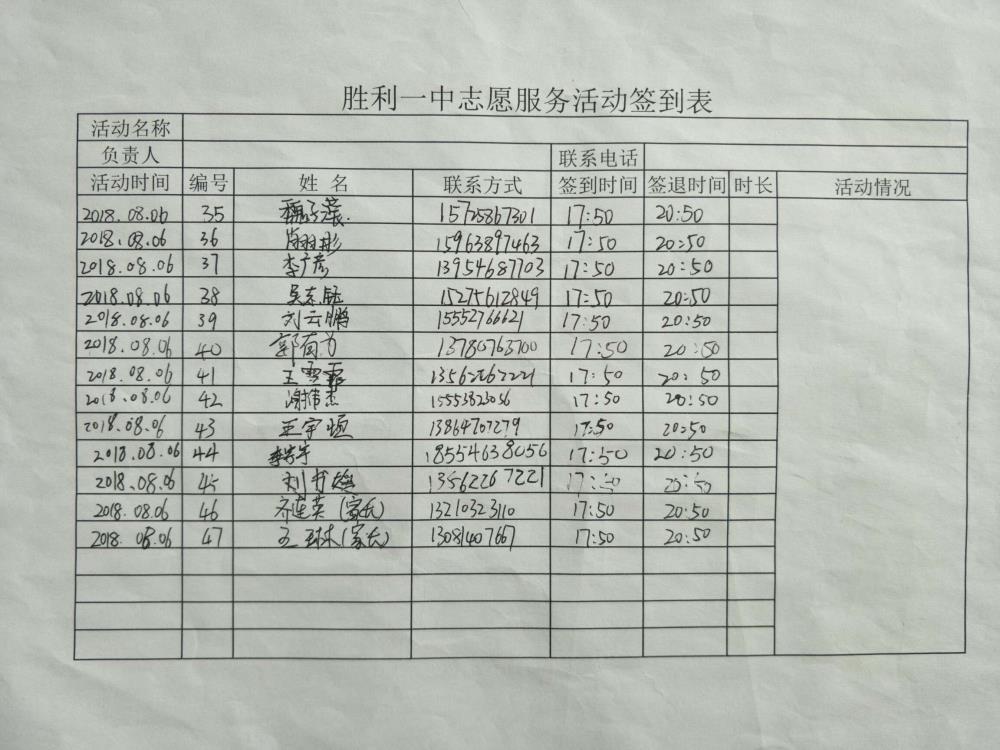 胜利一中志愿服务活动签到表
活动名称
负责人 联系电话
活动时间 编号 姓名 联系方式 签到时间 签退时间 时长 活动情况
2018.08.06 35 15725867301 17:50 20:50
2018.08.06 36 肖羽彤 15963897463 17:50 20:50
2018.08.06 37 李广彦 13954687703 17:50 20:50
2018.08.06 38 15275612849 17:50 20:50
2018.08.06 39 刘云鹏 15552766621 17:50 20:50
2018.08.06 40 郭有为 13780763700 17:50 20:50
2018.08.06 41 王雪霏 13562267221 17:50 20:50
2018.08.06 42 谢伟杰 17:50 20:50
2018.08.06 43 王宇恒 13864707279 17:50 20:50
2018.08.06 44 18554638056 17:50 20:50
2018.08.06 45 13562267221 17:50 20:50
2018.08.06 46 齐莲英(家长) 13210323110 17:50 20:50
2018.08.06 47 王琳(家长) 13081407667 17:50 20:50